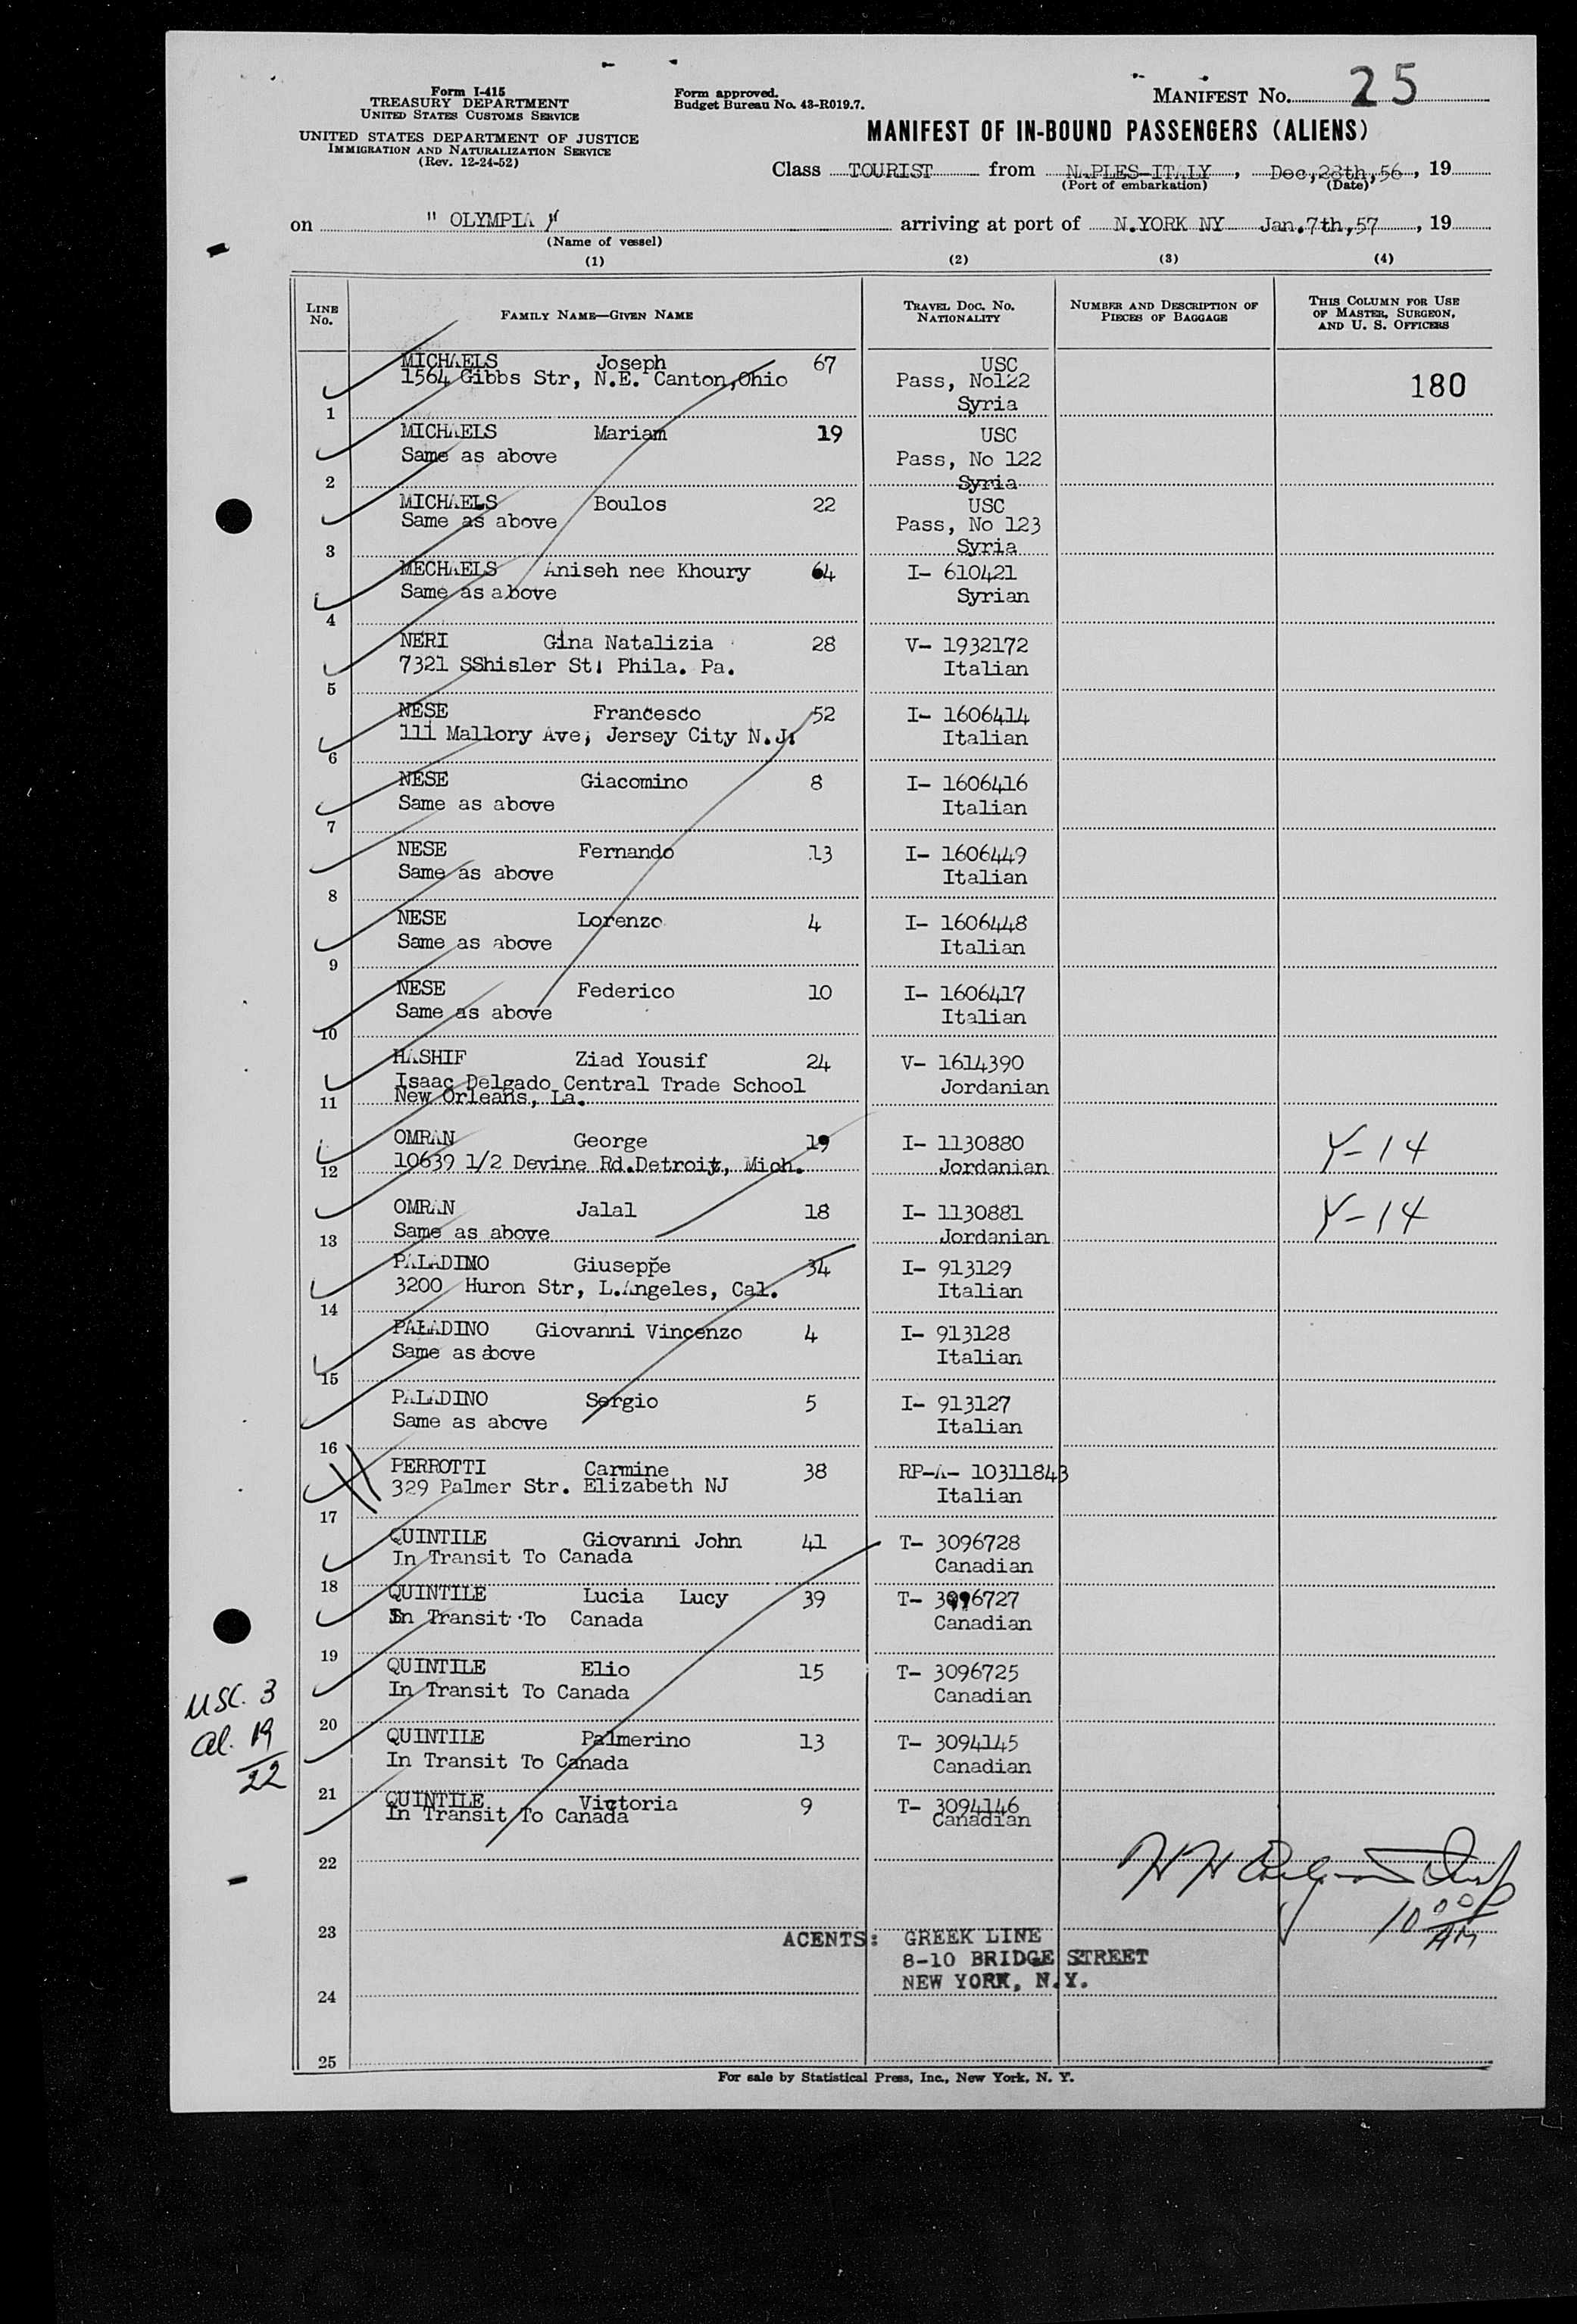 Form I-415
TREASURY DEPARTMENT
UNITED STATES CUSTOMS SERVICE
UNITED STATES DEPARTMENT OF JUSTICE
IMMIGRATION AND NATURALIZATION SERVICE
(Rev. 12-24-52)
Form approved.
Budget Bureau No. 43-R019.7.
MANIFEST No. 25
MANIFEST OF IN-BOUND PASSENGERS (ALIENS)
Class TOURIST from NAPLES-ITALY, Dec,28th,56, 19
(Port of embarkation) (Date)
on " OLYMPIA " arriving at port of N.YORK NY Jan.7th,57, 19
(Name of vessel)
(1) (2) (3) (4)
LINE No. FAMILY NAME—GIVEN NAME TRAVEL DOC. NO. NATIONALITY NUMBER AND DESCRIPTION OF PIECES OF BAGGAGE THIS COLUMN FOR USE OF MASTER, SURGEON, AND U. S. OFFICERS
MICHAELS Joseph 67 USC
1564 Gibbs Str, N.E. Canton,Ohio Pass, No122 180
1 Syria
MICHAELS Mariam 19 USC
Same as above Pass, No 122
2 Syria
MICHAELS Boulos 22 USC
Same as above Pass, No 123
3 Syria
MECHAELS Aniseh nee Khoury 64 I- 610421
Same as above Syrian
4
NERI Gina Natalizia 28 V- 1932172
7321 SShisler St. Phila. Pa. Italian
5
NESE Francesco 52 I- 1606414
111 Mallory Ave; Jersey City N.J. Italian
6
NESE Giacomino 8 I- 1606416
Same as above Italian
7
NESE Fernando 13 I- 1606449
Same as above Italian
8
NESE Lorenzo 4 I- 1606448
Same as above Italian
9
NESE Federico 10 I- 1606417
Same as above Italian
10
HASHIF Ziad Yousif 24 V- 1614390
Isaac Delgado Central Trade School Jordanian
11 New Orleans, La.
OMRAN George 19 I- 1130880 Y-14
12 10639 1/2 Devine Rd.Detroit, Mich. Jordanian
OMRAN Jalal 18 I- 1130881 Y-14
13 Same as above Jordanian
PALADINO Giuseppe 34 I- 913129
3200 Huron Str, L.Angeles, Cal. Italian
14
PALADINO Giovanni Vincenzo 4 I- 913128
Same as above Italian
15
PALADINO Sergio 5 I- 913127
Same as above Italian
16
PERROTTI Carmine 38 RP-A- 10311843
329 Palmer Str. Elizabeth NJ Italian
17
QUINTILE Giovanni John 41 T- 3096728
In Transit To Canada Canadian
18
QUINTILE Lucia Lucy 39 T- 3096727
In Transit To Canada Canadian
19
QUINTILE Elio 15 T- 3096725
In Transit To Canada Canadian
20
QUINTILE Palmerino 13 T- 3094145
In Transit To Canada Canadian
21
QUINTILE Victoria 9 T- 3094146
In Transit To Canada Canadian
USC. 3
al. 19
22
22
10 00 AM
23
AGENTS: GREEK LINE
8-10 BRIDGE STREET
NEW YORK, N.Y.
24
25
For sale by Statistical Press, Inc., New York, N. Y.